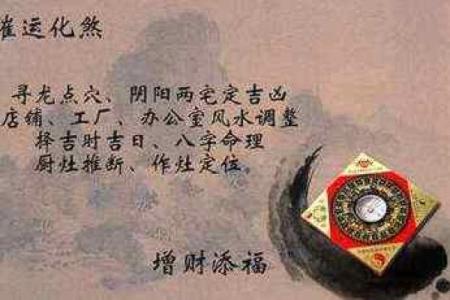 催运化煞
寻龙点穴、阴阳两宅定吉凶
店铺、工厂、办公室风水调整
择吉时吉日、八字命理
厨灶推断、作灶定位。
增财添福